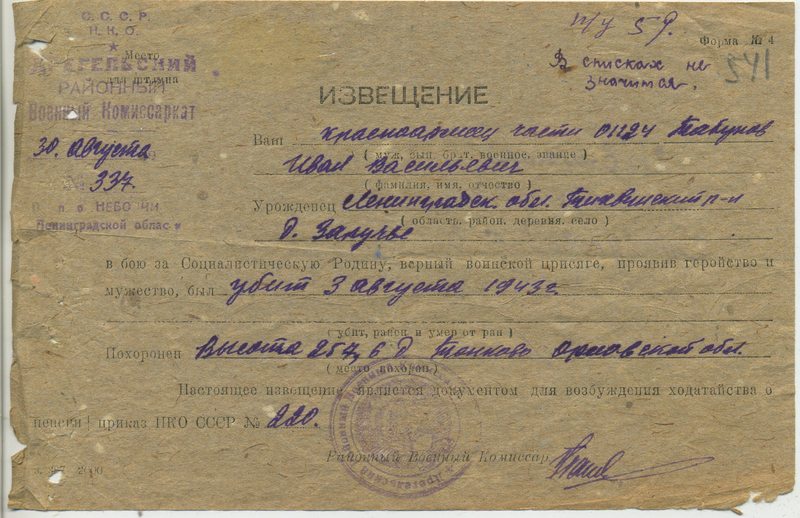 С.С.С.Р.
Н.К.О.
Место
для штампа
РАЙОННЫЙ
Военный Комиссариат
30 августа
337.
НЕБОЛЧИ
Ленинградской области
п/у 59.
Форма № 4
В списках не
значится.
341
ИЗВЕЩЕНИЕ
Ваш красноармеец части 01124 Табунов
( муж, сын, брат, военное, звание )
Иван Васильевич
( фамилия, имя, отчество )
Урожденец Ленинградск. обл. Тихвинский р-н
( область, район, деревня, село )
д. Заручье
в бою за Социалистическую Родину, верный воинской присяге, проявив геройство и
мужество, был убит 3 августа 1943 г.
( убит, ранен и умер от ран )
Похоронен Высота 257,6 д. Тонково Орловской обл.
( место похорон )
Настоящее извещение является документом для возбуждения ходатайства о
пенсии ( приказ НКО СССР № 220.
Районный Военный Комиссар